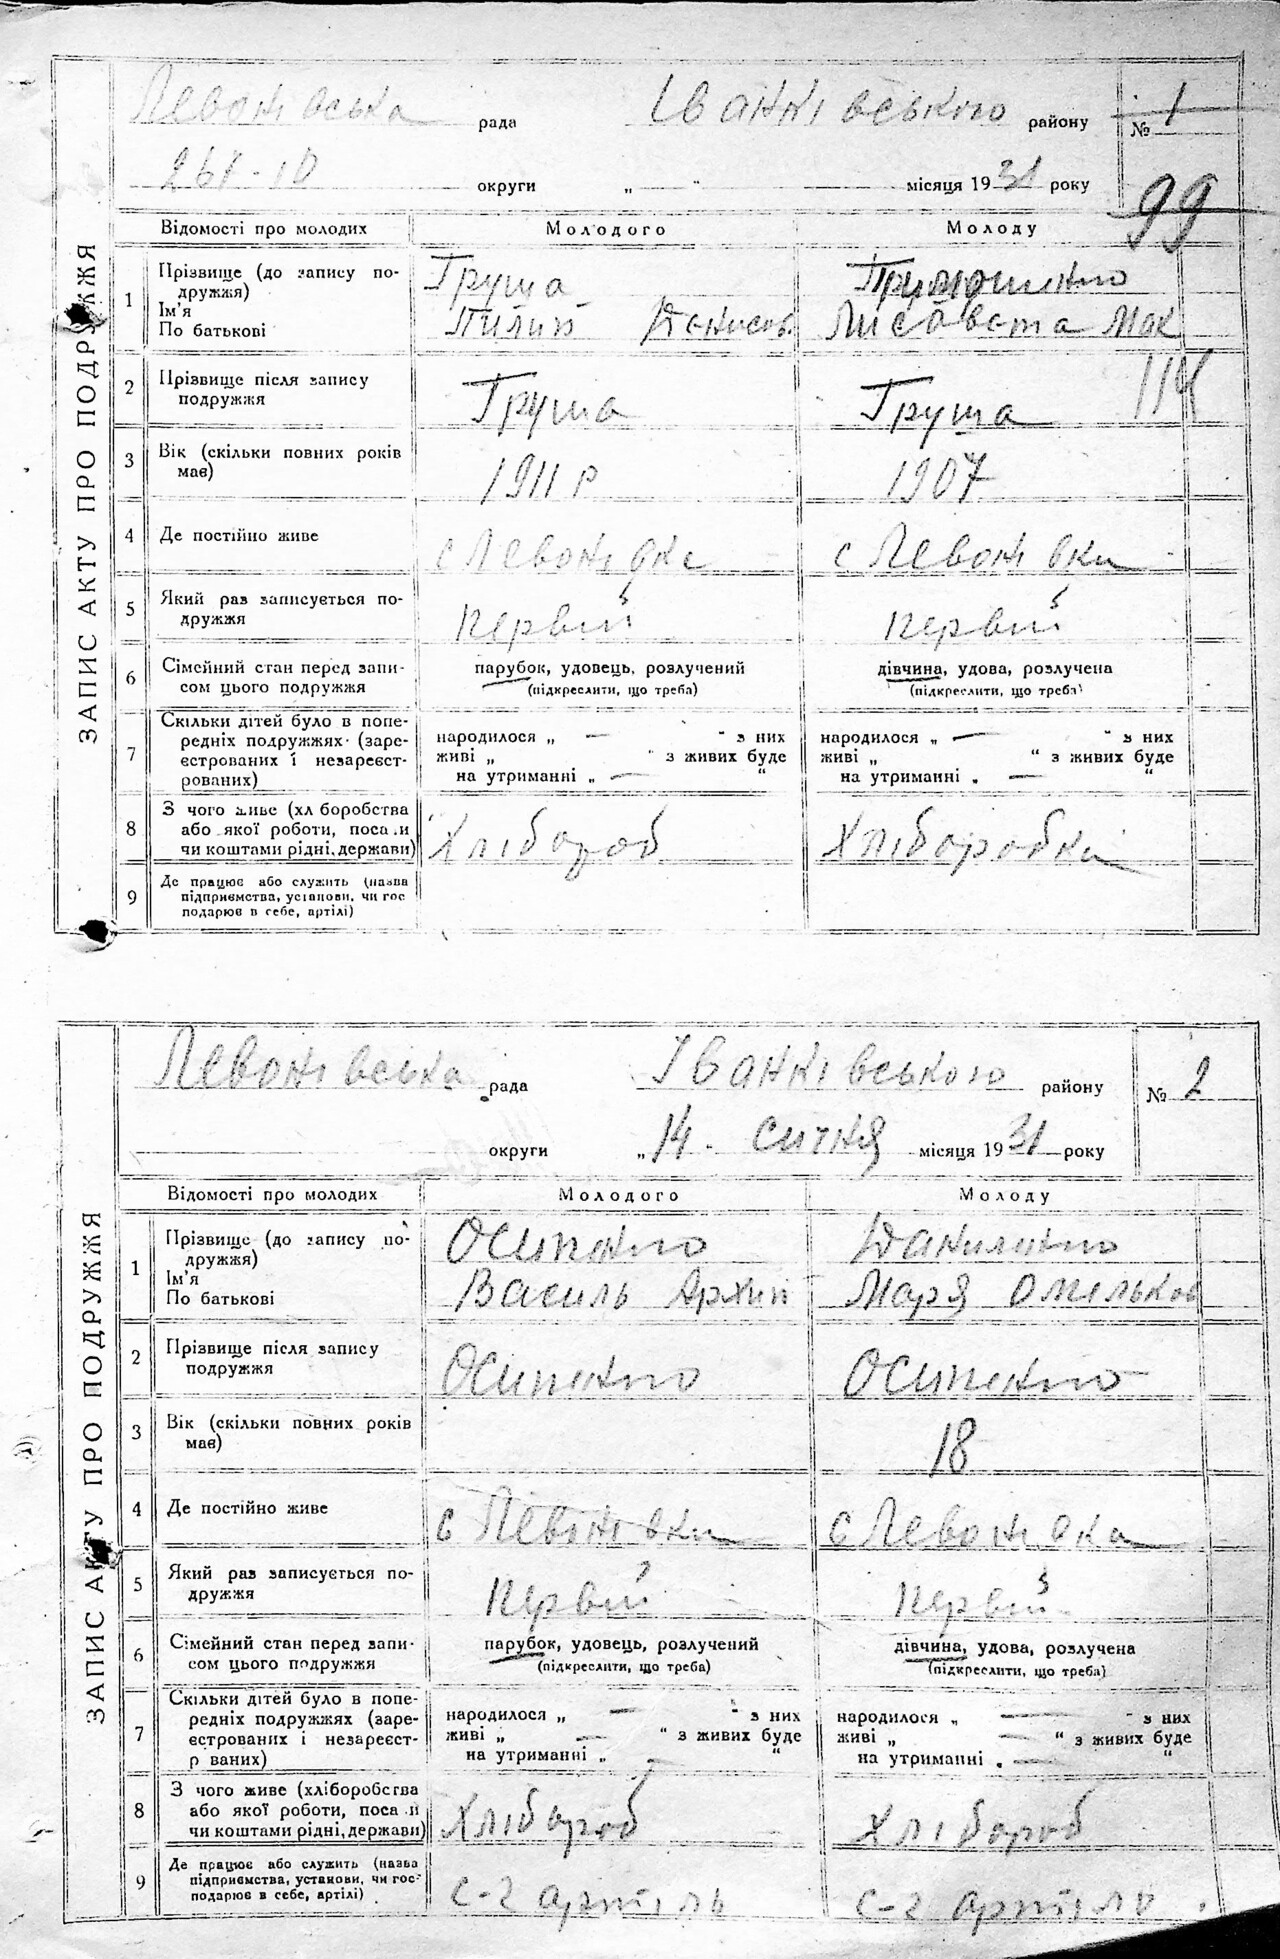 ЗАПИС АКТУ ПРО ПОДРУЖЖЯ
Левонівська рада Іванківського району № 1
округи „ — “ місяця 1931 року
99
Відомості про молодих Молодого Молоду
1 Прізвище (до запису подружжя) Ім'я По батькові
Груша
Пилип Денисов.
Лисавета Мак
2 Прізвище після запису подружжя Груша Груша 114
3 Вік (скільки повних років має) 1911 р 1907
4 Де постійно живе с Левонівка с Левонівка
5 Який раз записується подружжя первий первий
6 Сімейний стан перед записом цього подружжя парубок, удовець, розлучений дівчина, удова, розлучена
(підкреслити, що треба) (підкреслити, що треба)
7 Скільки дітей було в попередніх подружжях (зареєстрованих і незареєстрованих)
народилося „ — “ з них народилося „ — “ з них
живі „ “ з живих буде живі „ “ з живих буде
на утриманні „ — “ на утриманні „ — “
8 З чого живе (хліборобства або якої роботи, посади чи коштами рідні, держави) Хлібороб Хліборобка
9 Де працює або служить (назва підприємства, установи, чи господарює в себе, артілі)
ЗАПИС АКТУ ПРО ПОДРУЖЖЯ
Левонівська рада Іванківського району № 2
округи „14 - січня місяця 1931 року
Відомості про молодих Молодого Молоду
1 Прізвище (до запису подружжя) Ім'я По батькові
Осипенко Даниленко
Василь Архип Маря Омельков
2 Прізвище після запису подружжя Осипенко Осипенко
3 Вік (скільки повних років має) 18
4 Де постійно живе с Левонівка с Левонівка
5 Який раз записується подружжя первий первий
6 Сімейний стан перед записом цього подружжя парубок, удовець, розлучений дівчина, удова, розлучена
(підкреслити, що треба) (підкреслити, що треба)
7 Скільки дітей було в попередніх подружжях (зареєстрованих і незареєстрованих)
народилося „ — “ з них народилося „ — “ з них
живі „ — “ з живих буде живі „ — “ з живих буде
на утриманні „ — “ на утриманні „ — “
8 З чого живе (хліборобства або якої роботи, посади чи коштами рідні, держави) Хлібороб Хлібороб
9 Де працює або служить (назва підприємства, установи, чи господарює в себе, артілі) с-г артіль с-г артіль